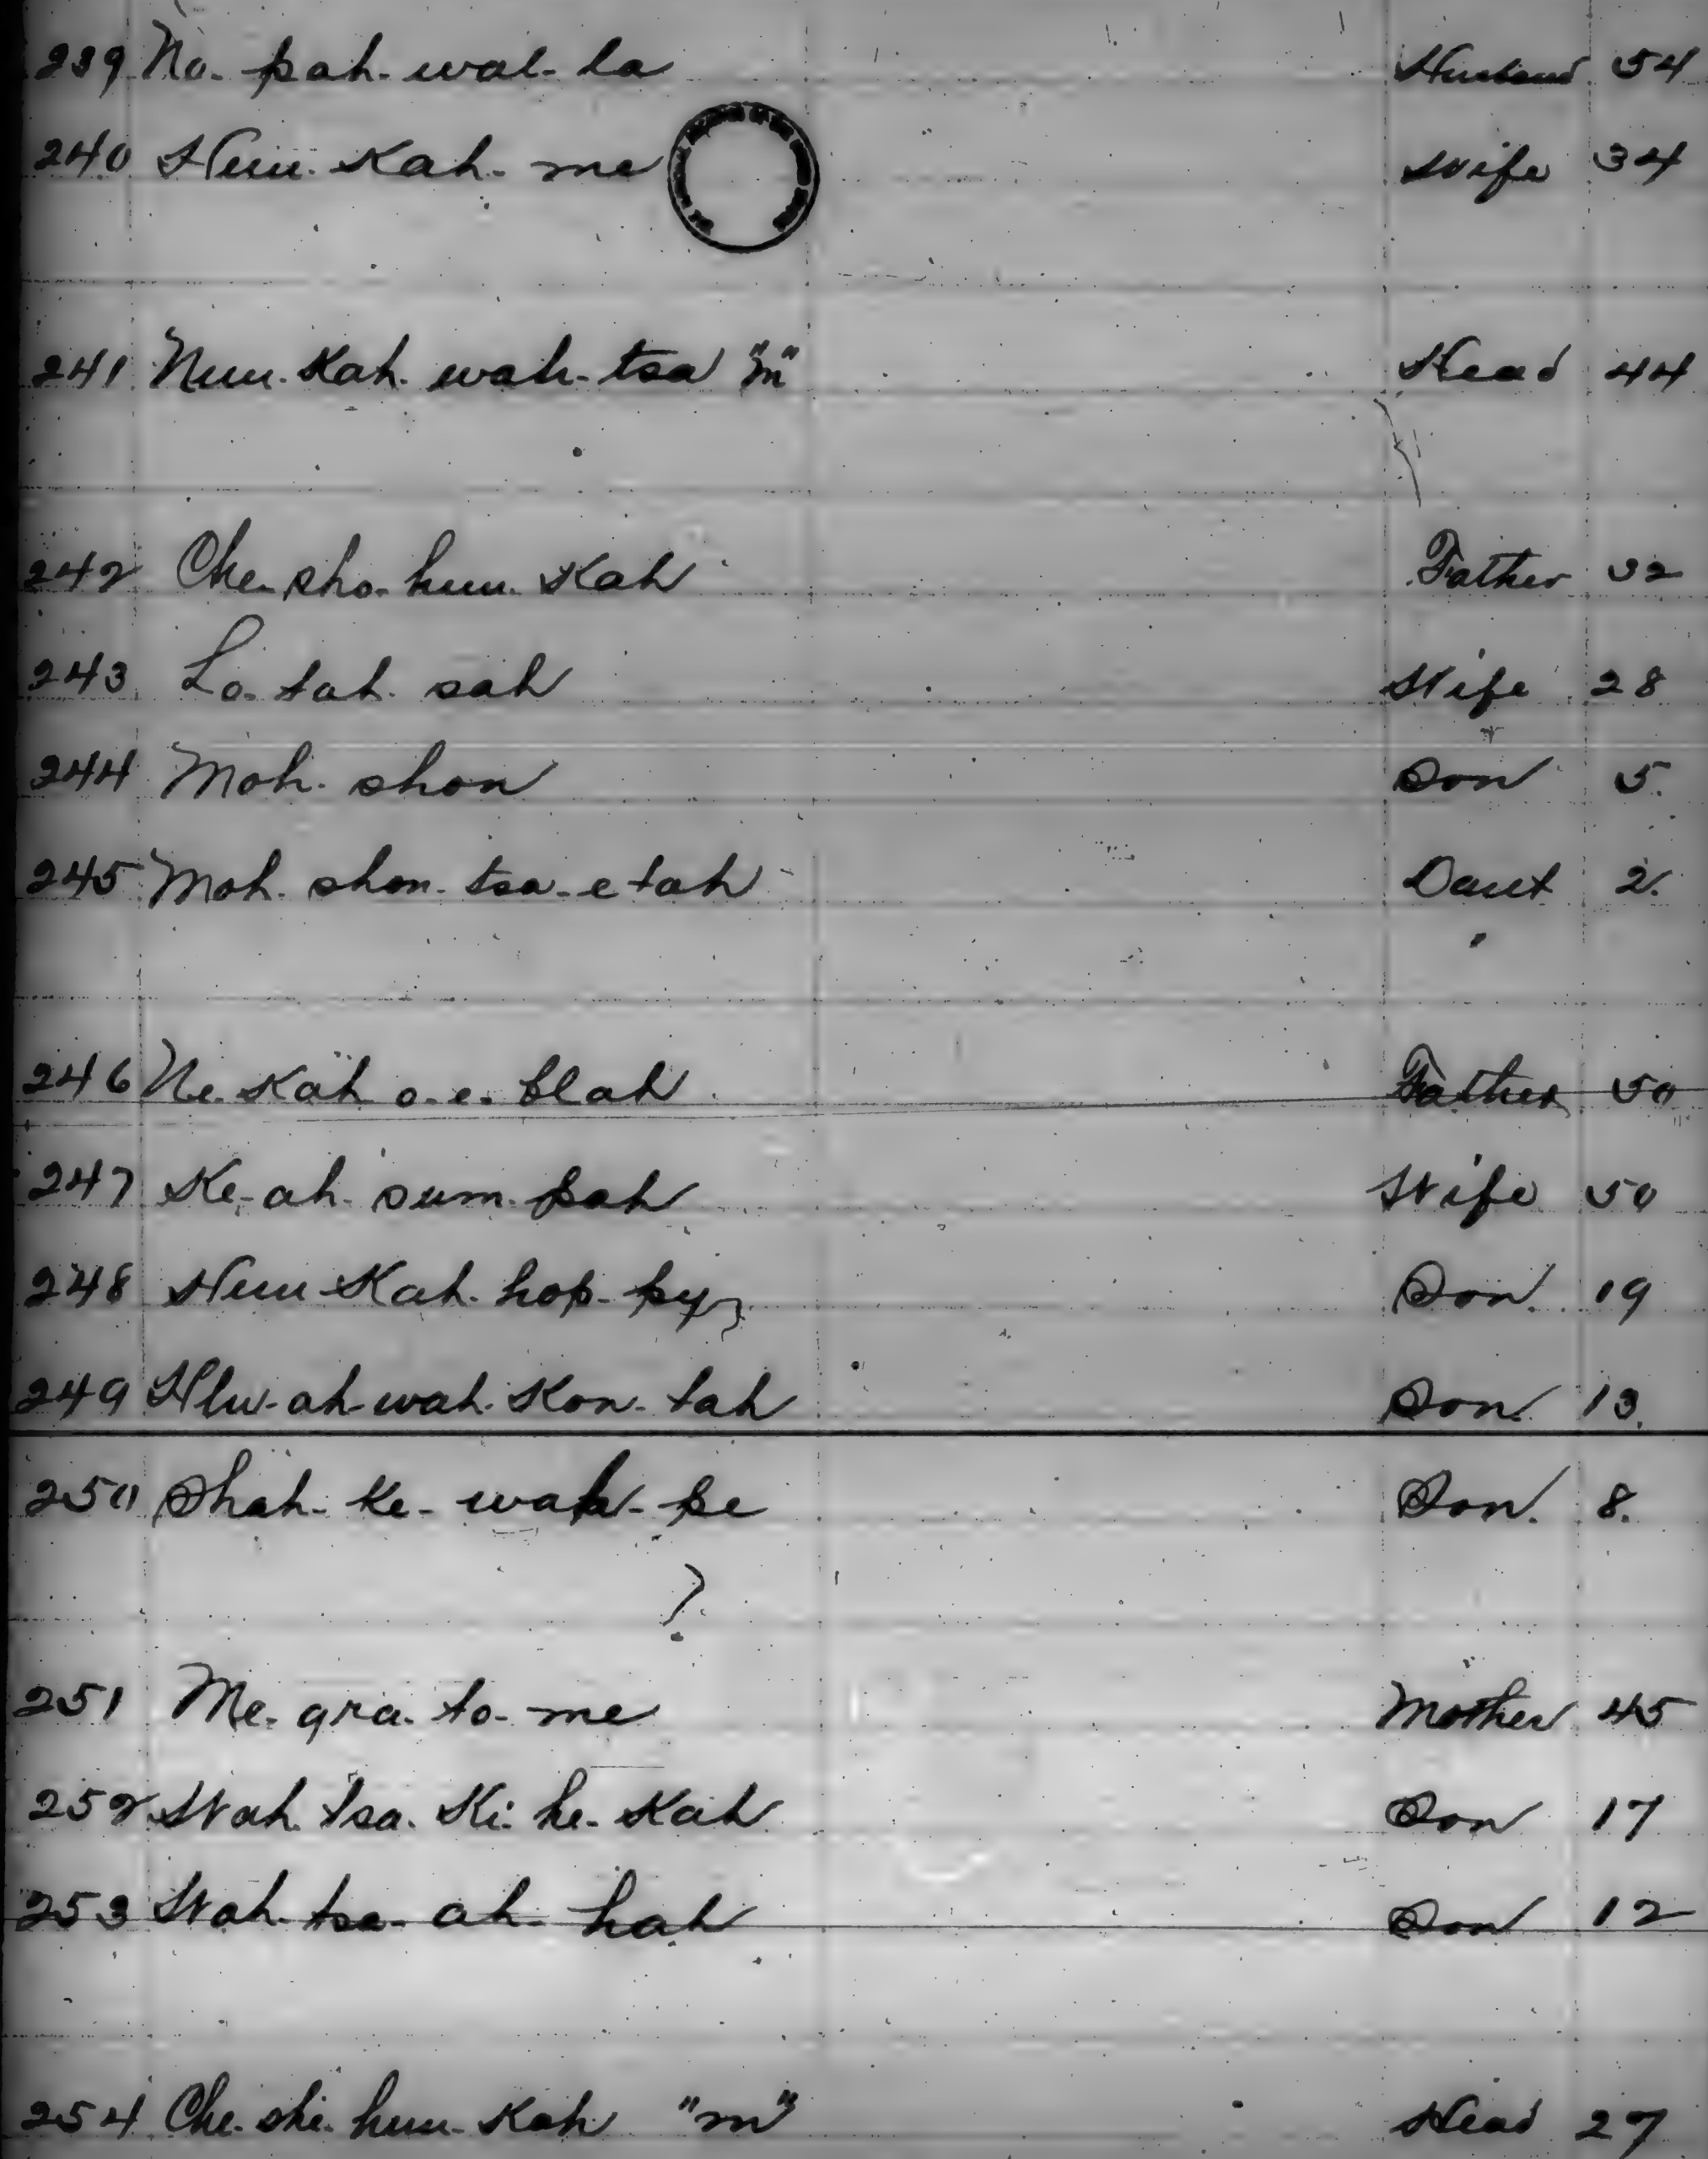 239 No-pah-wal-la Husband 54
240 Hun-Kah-me Wife 34
241 Nun-Kah-wah-tsa "m" Head 44
242 Che-sho-hun-Kah Father 32
243 Lo-tah-sah Wife 28
244 Moh-shon Son 5.
245 Moh-shon-tsa-e tah Daut 2.
246 Ne-Kah o-e-blah Father 50
247 Ke-ah-sum-pah Wife 50
248 Hun-Kah-hop-py Son 19
249 Hlu-ah-wah-Kon-tah Son 13.
250 Shah-ke-wah-pe Son. 8.
?
251 Me-gra-to-me Mother 45
252 Wah-tsa-Ki-he-Kah Son 17
253 Wah-tsa-ah-hah Son 12
254 Che-she-hun-Kah "m" Head 27